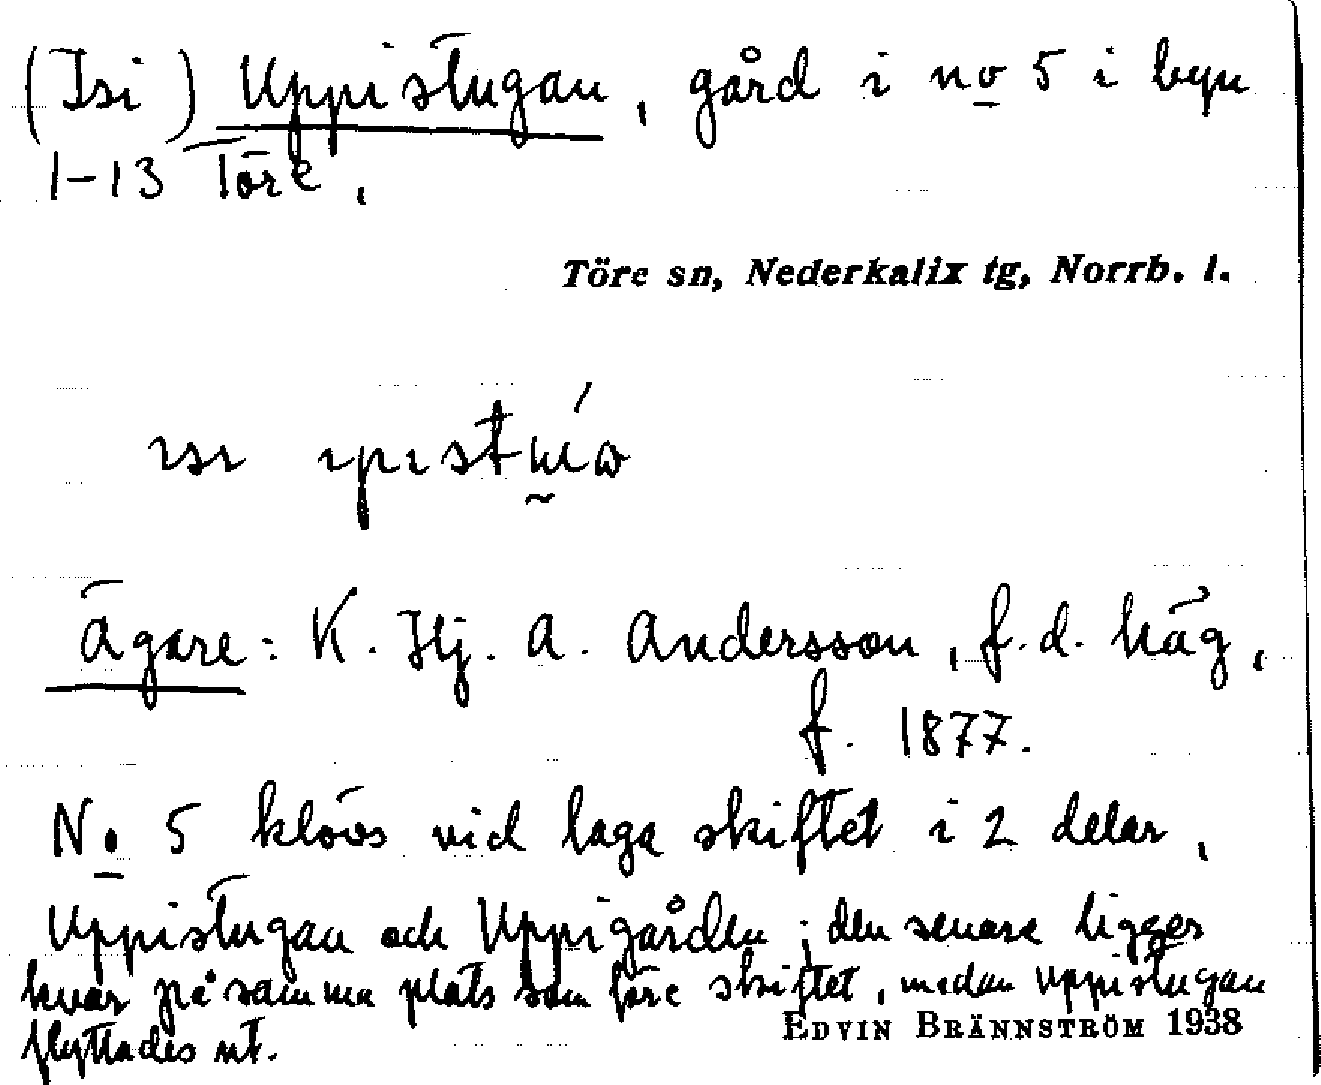 (Isi) Uppistugan, gård i no 5 i byn
1-13 Töre.
Töre sn, Nederkalix tg, Norrb. l.
ısı
Ägare: K. Hj. A. Andersson, f.d. häg,
f. 1877.
No 5 klövs vid laga skiftet i 2 delar,
Uppistugan och Uppigården; den senare ligger
kvar på samma plats som före skiftet, medan Uppistugan
flyttades ut.
EDVIN BRÄNNSTRÖM 1938